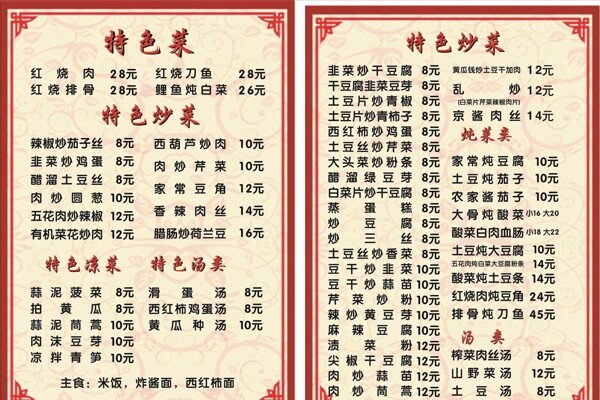 特色菜
红烧肉 28元 红烧刀鱼 28元
红烧排骨 28元 鲤鱼炖白菜 26元
特色炒菜
辣椒炒茄子丝 8元 西葫芦炒肉 10元
韭菜炒鸡蛋 8元 肉炒芹菜 10元
醋溜土豆丝 8元 家常豆角 12元
肉炒圆葱 10元 香辣肉丝 14元
五花肉炒辣椒 12元 腊肠炒荷兰豆 16元
有机菜花炒肉 12元
特色凉菜 特色汤类
蒜泥菠菜 8元 滑蛋汤 8元
拍黄瓜 8元 西红柿鸡蛋汤 8元
蒜泥茼蒿 10元 黄瓜种汤 10元
肉沫豆芽 10元
凉拌青笋 10元
主食：米饭，炸酱面，西红柿面
特色炒菜
韭菜炒干豆腐 8元
干豆腐韭菜豆芽 8元
土豆片炒青椒 8元
土豆片炒青柿子 8元
西红柿炒鸡蛋 8元
土豆丝炒芹菜 8元
大头菜炒粉条 8元
醋溜绿豆芽 8元
白菜片炒干豆腐 8元
蒸蛋糕 8元
炒豆腐 8元
炒三丝 8元
土豆丝炒香菜 8元
豆干炒韭菜 10元
豆干炒蒜苗 10元
芹菜炒粉 10元
辣炒黄豆芽 10元
麻辣豆腐 10元
渍菜粉 12元
尖椒干豆腐 12元
肉炒蒜苗 12元
肉炒茼蒿 12元
黄瓜钱炒土豆干加肉 12元
乱炒 12元
(白菜片芹菜辣椒肉片)
京酱肉丝 14元
炖菜类
家常炖豆腐 10元
土豆炖茄子 10元
农家酱茄子 10元
大骨炖酸菜 小16 大20
酸菜白肉血肠 小18 大22
土豆炖大豆腐 10元
五花肉炖白菜大豆腐粉条 14元
酸菜炖土豆条 14元
红烧肉炖豆角 24元
排骨炖刀鱼 45元
汤类
榨菜肉丝汤 8元
山野菜汤 12元
土豆汤 8元